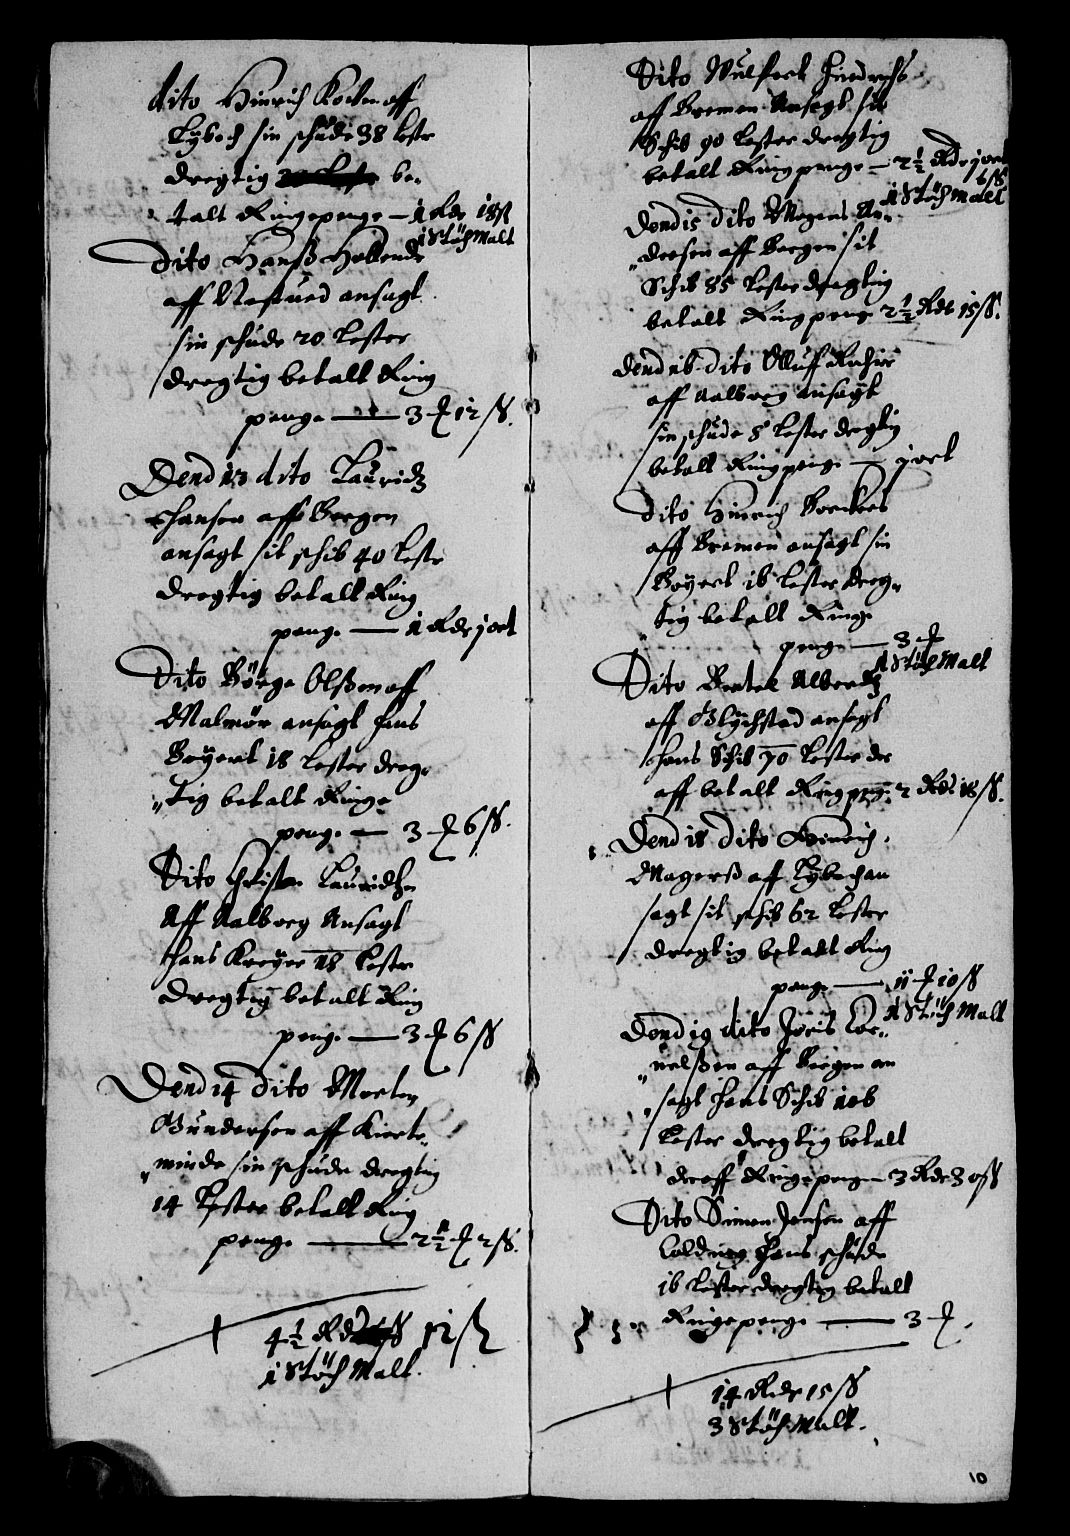 dito Hinrich Kockn aff
Lybech sin schude 38 lester
dregtig be¬
talt Ringepenge — 1 Rdr 18 ß
1 Støch Malt
Dito Hanß Hollender
aff Nestued ansagt
sin schude 20 Lester
dregtig betalt Ring
penge — 3 ₰ 12 ß.
Dend 13 dito Lauridz
Hansen aff Bergen
ansagt sit schib 40 Lester
dregtig betalt Ring
penge — 1 Rdr j ort
Dito Børge Olßen aff
Malmør ansagt hans
Bøyert 18 Lester dreg¬
tig betalt Ringe
penge — 3 ₰ 6 ß.
Dito Christen Lauridzen
Aff Aalborg Ansagt
hans Kreyer 18 Lester
Dregtig betalt Ring
penge — 3 ₰ 6 ß
Dend 14 dito Morten
Gundersen aff Kierte¬
minde sin schude dregtig
14 Lester betalt Ring
penge — 2 1/2 ₰ 2 ß.
4 1/2 Rdr 12 ß
1 Støch Malt.
Dito Wulfert Hindrichs
aff Bremen Ansagt sit
Schib 90 Lester dregtig
betalt Ringpenge — 2 1/2 Rdr j ort
6 ß
1 Støch Malt
Dend 15 dito Mogens An¬
dersen aff Bergen sit
Schib 85 Lester dregtig
betalt Ringpenge 2 1/2 Rdr 15 ß.
Dend 16 dito Olluf
aff Aalborg ansagt
sin schude 8 Lester dregtig
betalt Ringpenge — j ort
Dito Hinrich
aff Bremen ansagt sin
Bøyert 16 Lester dreg¬
tig betalt Ringe
penge — 3 ₰
1 Støch Malt
Dito Bertel Albertz
aff Glychstad ansagt
hans Schib 70 Lester der
aff betalt Ringpenge 2 Rdr 18 ß.
Dend 18 dito Hinrich
Magerß aff Lybech an
sagt sit schib 62 Lester
dregtig betalt Ring
penge — 11 ₰ 10 ß
1 Støch Malt
Dend 19 dito Joris Cor¬
nelßen aff Bergen an
sagt hans Schib 106
Lester dregtig betalt
deraff Ringepenge 3 Rdr 30 ß
Dito Simen Jensen aff
Colding hans schude
16 Lester dregtig betalt
Ringepenge — 3 ₰.
14 Rdr 15 ß
3 Støch Malt.
10